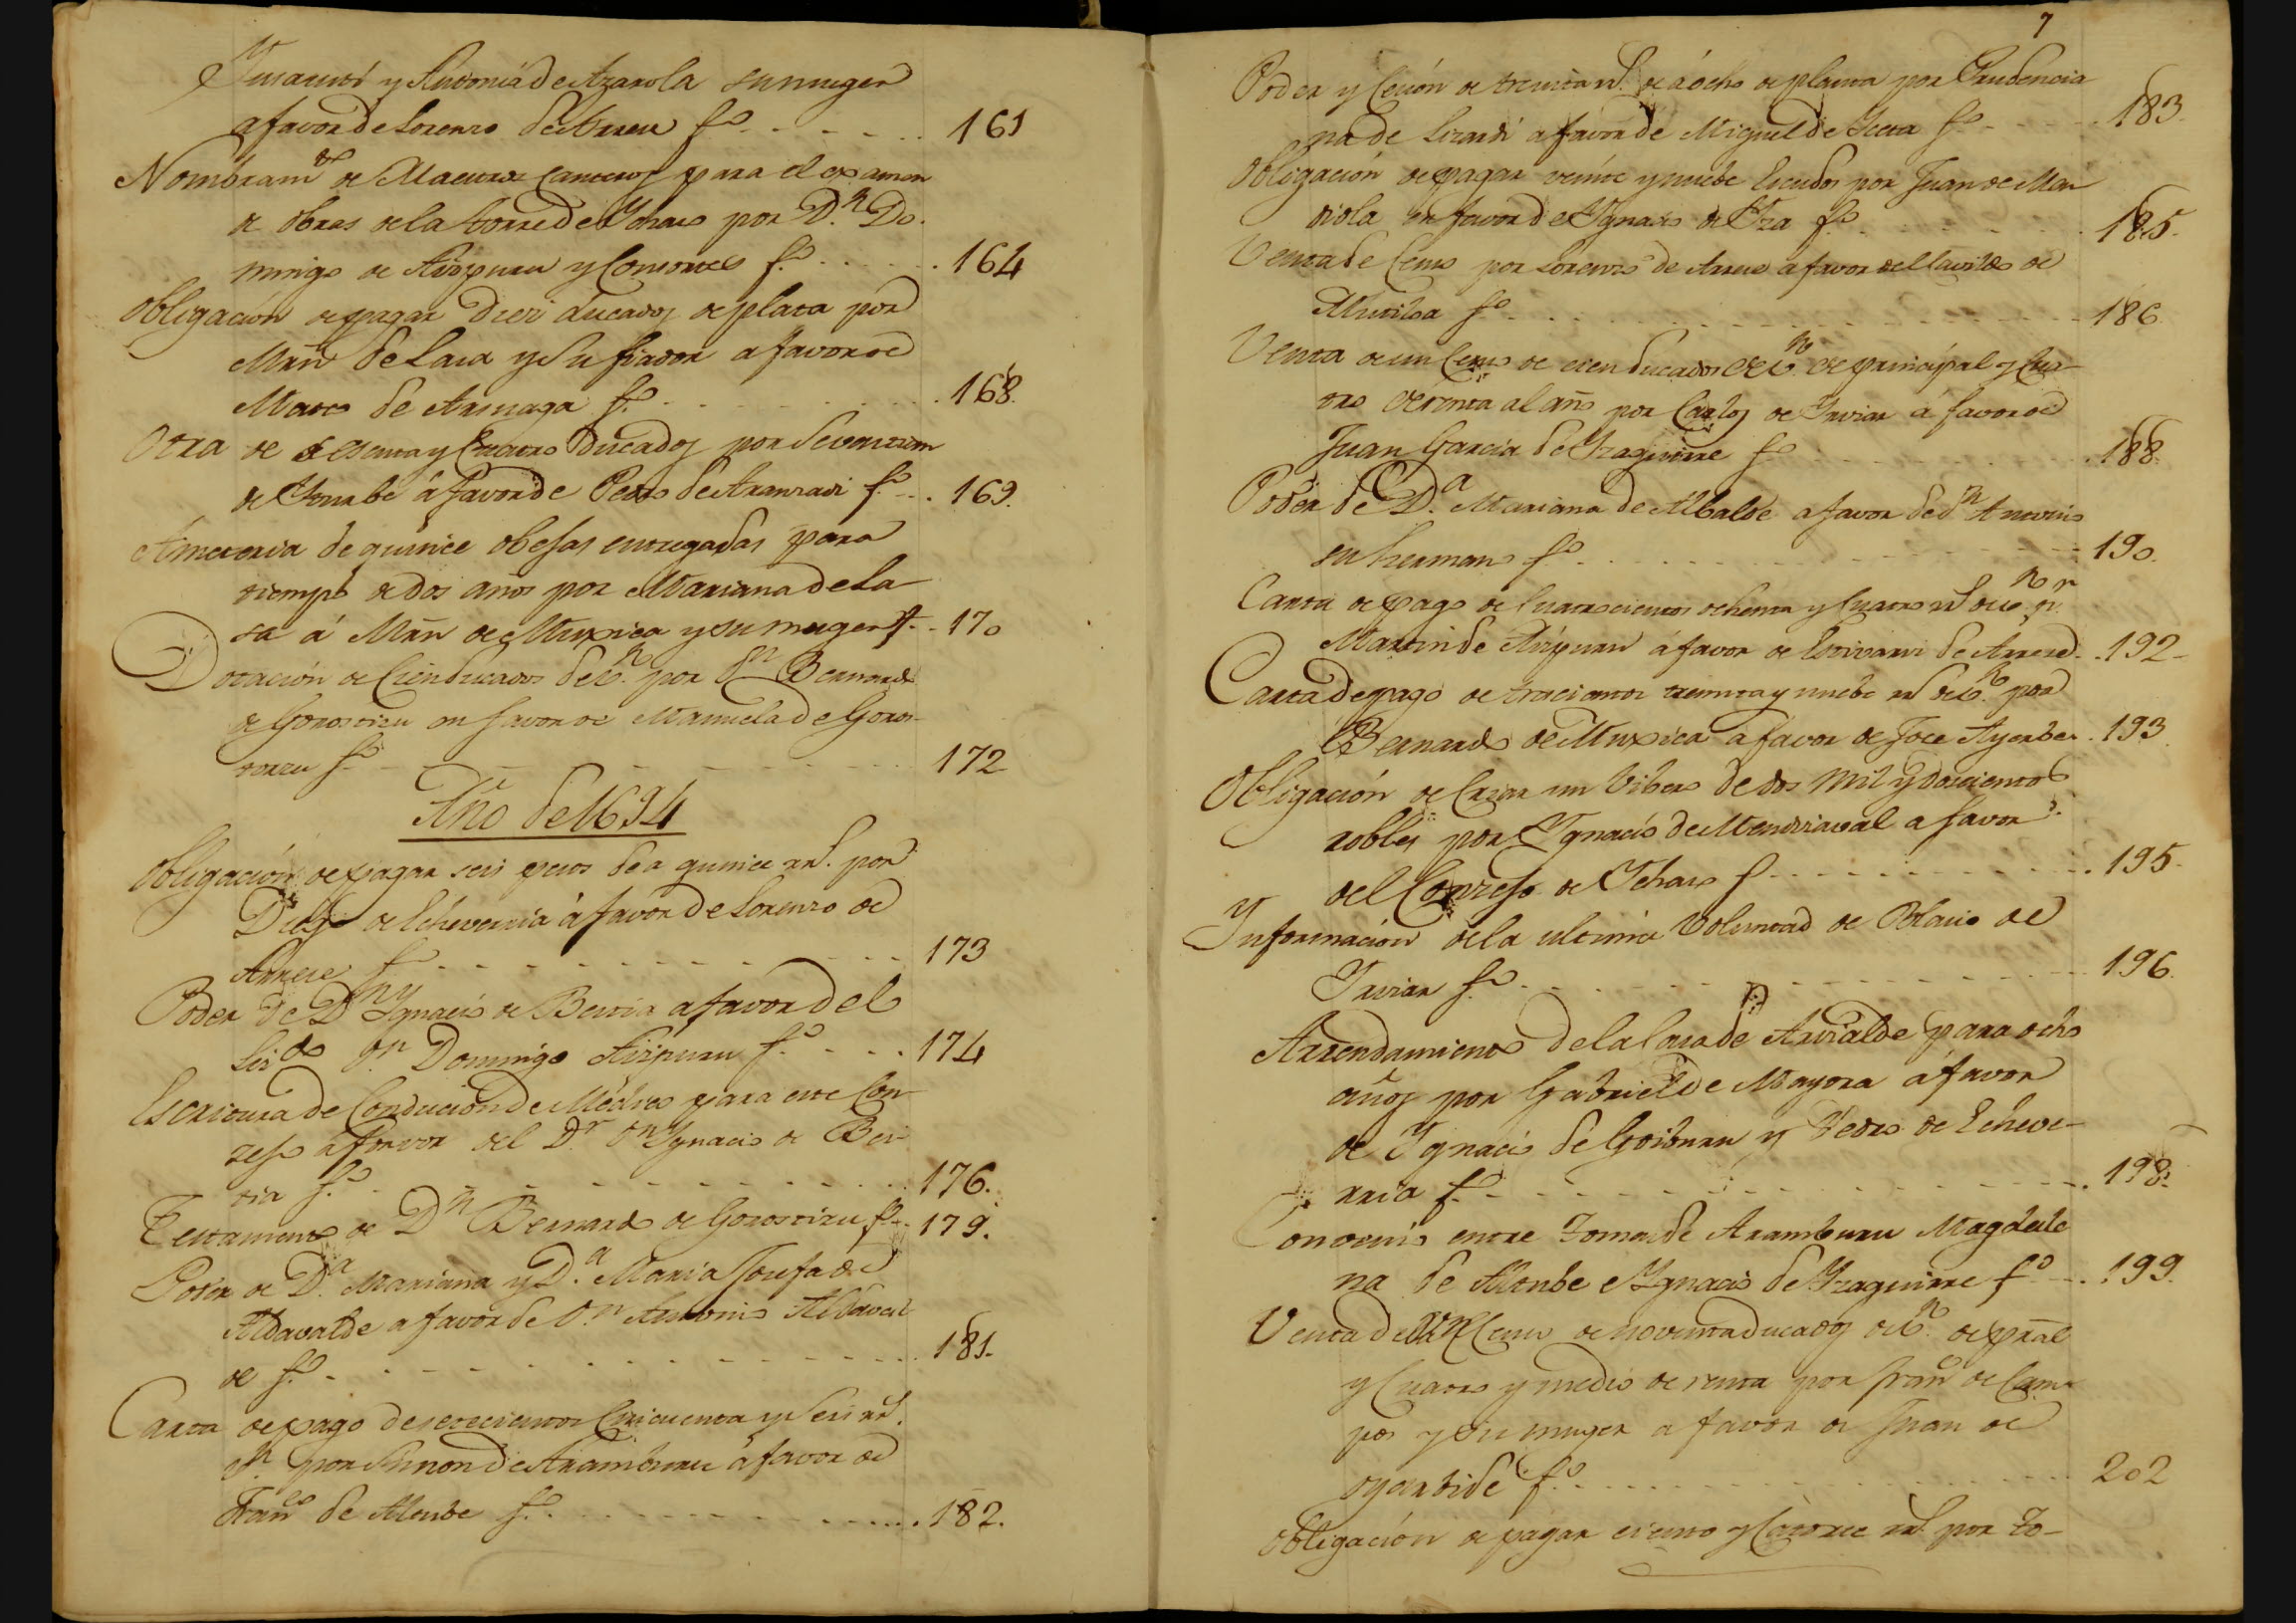 y Antonia de Azarola su muger
a favor de Lorenzo de Arreu f.º 161
Nombram.to de Maestros Canteros para el examen
de obras de la torre de Ychaso por D.n Do-
mingo de Aizpuru y Consortes f.º 164
Obligación de pagar Diez ducados de plata por
Mrñ de Lasa y Su fiador a favor de
Marcos de Arsuaga f.º 168.
Otra de sesenta y Cuatro Ducados por Sevastian
de Yturbe á favor de Pedro de Aranzadi f.º 169.
Ámetería de quince obejas entregadas para
tiempo de dos años por Mariana de La-
sa á Mrñ de Muxica y su muger f. 170
Dotación de Cien ducados de v.n por D.n Bernardo
de Gorostizu en favor de Manuela de Goros-
tizu f.º 172
Año de 1694
Obligación de pagar seis pesos de a quince rrs. por
Diego de Echeverria á favor de Lorenzo de
Arrese f.º 173
Poder de D.n Ygnacio de Beroia a favor del
Lis.do D.n Domingo Aizpuru f.º 174
Escritura de Condución de Médico para este Con-
zejo a favor del D.r D.n Ygnacio de Ber-
oia f.º 176.
Testamento de D.n Bernardo de Gorostizu f.º 179.
Poder de D.a Mariana y D.a Maria Josefa de
Aldavalde a favor de D.n Antonio Aldaval-
de f.º 181.
Carta de pago de setecientos Cincuenta y Seis rrs.
v.n por Simon de Aramburu á favor de
Fran.co de Alcube f.º 182.
7
Poder y Cesión de treinta rrs. de á ocho de planta por Prudencia
na de Lizardi a favor de Miguel de Yceta f.º 183.
Obligación de pagar veinte y nuebe Escudos por Juan de Mar-
diola en favor de Ygnacio de Yza f.º 185.
Venta de Censo por Lorenzo de Arrese a favor del Cavildo de
Mutiloa f.º 186.
Venta de un Censo de cien ducados de v.n de principal y Cua-
tro de renta al año por Carlos de Yrviar á favor de
Juan Garcia de Yzaguirre f.º 188.
Poder de D.a Mariana de Albalde a favor de d.n Antonio
su hermano f.º 190.
Carta de pago de Cuatrocientos ochenta y Cuatro rs. de v.n p.r
Martin de Aizpuru á favor de Estivariz de Arrese 192
Carta de pago de trecientos treinta y nuebe rs. de v.n por
Bernardo de Muxica a favor de Jose Ayerbe 193
Obligación de Criar un Vibero de dos Mil y doscientos
robles por Ygnacio de Mendizaval a favor
del Conzejo de Ychaso f. 195.
Ynformación de la ultima Voluntad de Blasio de
Yrviar f.º 196.
Arrendamiento de la Casa de Arizalde para ocho
años por Gabriel de Mayora á favor
de Ygnacio de Goiburu y Pedro de Echeve-
rria f.º 198.
Convenio entre Tomas de Aramburu Magdale
na de Alcube e Ygnacio de Yzaguirre f.º 199.
Venta de Censo de noventa ducados de v.n de prãl
y Cuatro y medio de renta por fran.co de Cam-
pos y su muger a favor de Juan de
oyarbide f.º 202
Obligación de pagar ciento y Catorce rs. por To-